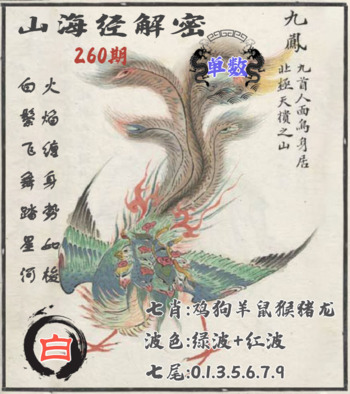 山海经解密
260期
单数
九鳳
九首人而鸟身居
北極天樻之山
火焰缠身势如梭
白鬃飞舞踏星河
白
七肖:鸡狗羊鼠猴猪龙
波色:绿波+红波
七尾:0.1.3.5.6.7.9